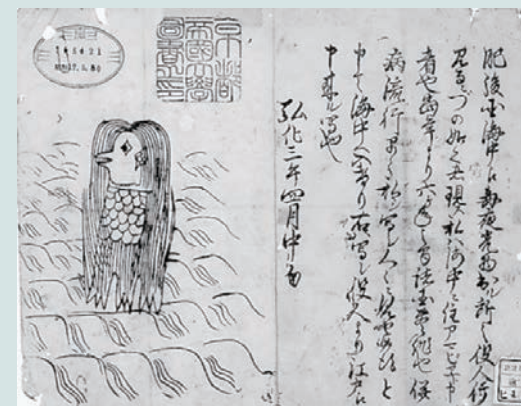 肥後国海中え毎夜光物出ル所之役人行
見るニづの如く者現ス私ハ海中ニ住アマビヱト申
者也当年より六ヶ年之間諸国豊作也併
病流行早々私シ写シ人々ニ見セ候得と
申て海中へ入けり右写シ役人より江戸え
申来ル写也
弘化三年四月中旬
京都
帝國大學
圖書之印